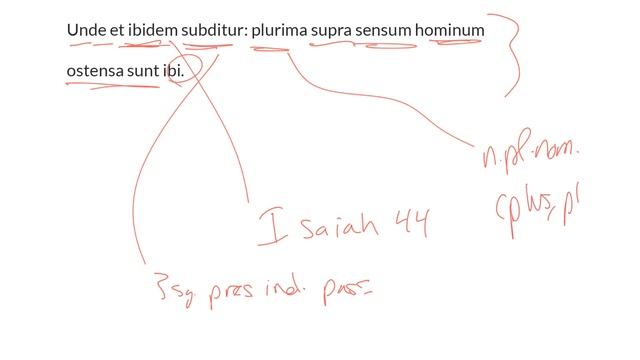 Unde et ibidem subditur: plurima supra sensum hominum
ostensa sunt ibi.
n.pl.nom.
(plus, pl
Isaiah 44
3 sg. pres ind. pass